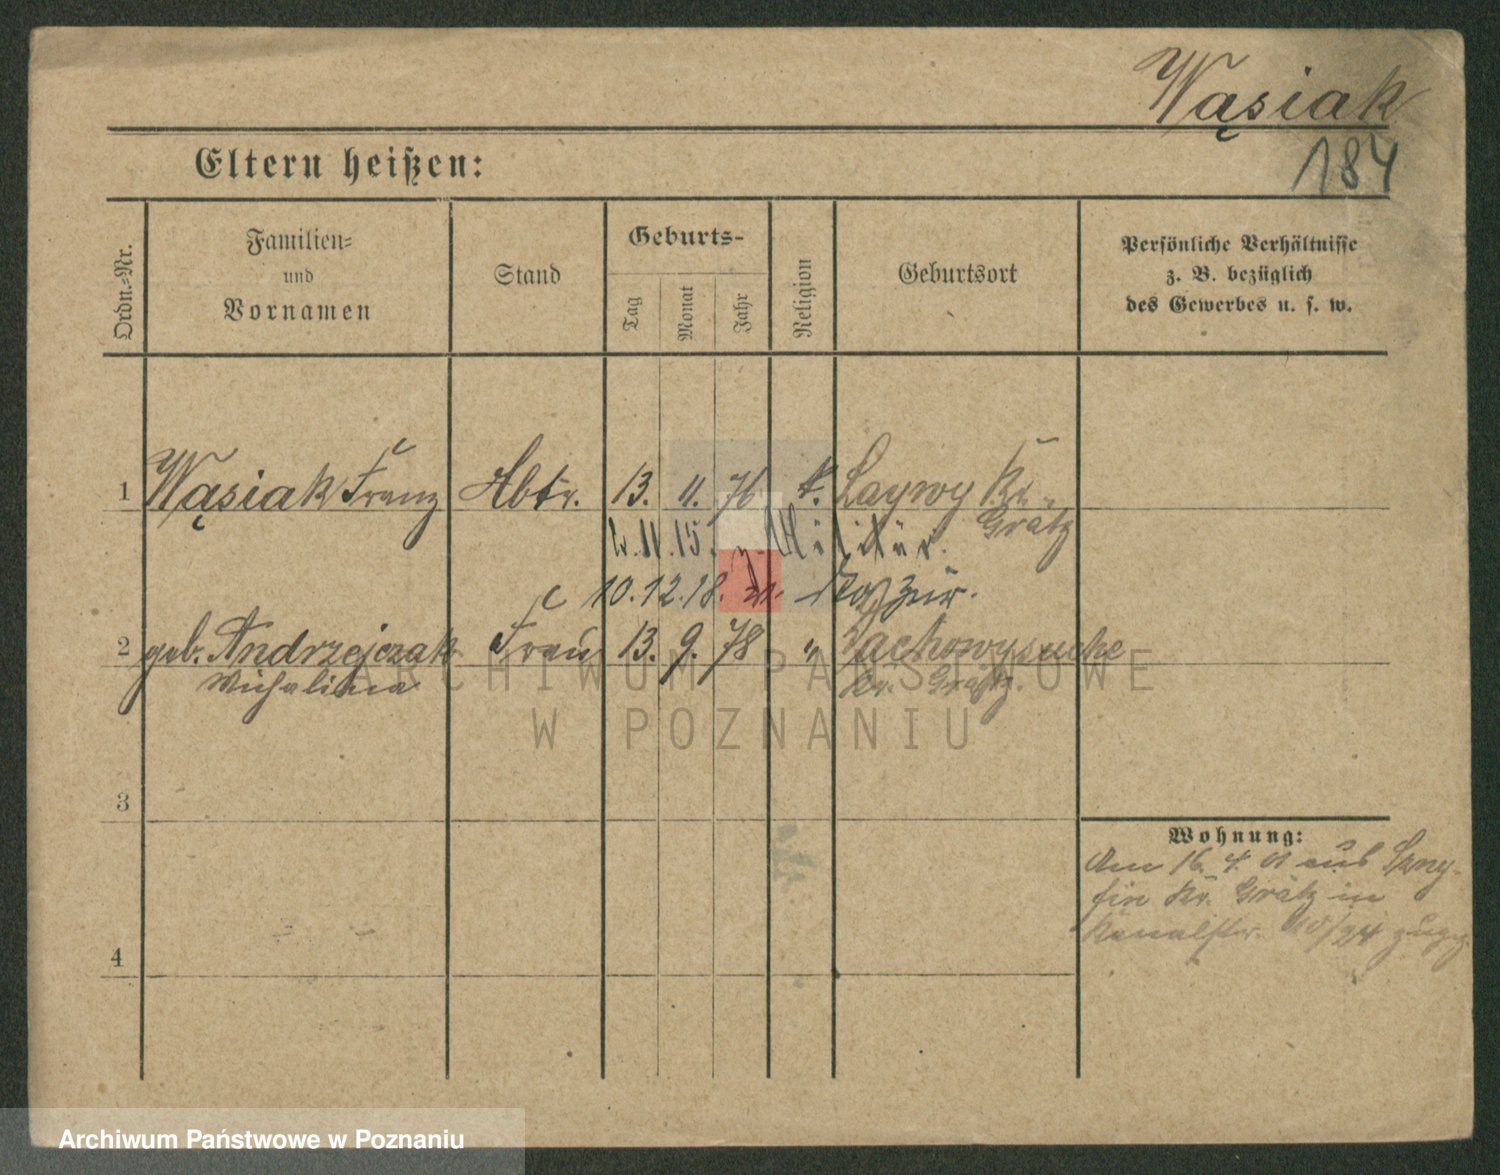 Wąsiak
184
Eltern heißen:
Ordn.-Nr.
Familien-
und
Vornamen
Stand
Geburts-
Tag
Monat
Jahr
Religion
Geburtsort
Persönliche Verhältnisse
z. B. bezüglich
des Gewerbes u. s. w.
1 Wąsiak Franz Hbtr. 13. 11. 76 k. Kr.
Grätz
11. 15. z. Militär.
10. 12. 18. zur.
2 geb. Andrzejczak Frau 13. 9. 78 "
Michalina Kr. Grätz.
ARCHIWUM PAŃSTWOWE
W POZNANIU
3
Wohnung:
Am 16. 4. 01 aus
Kr. Grätz in
Kanalstr. /24 zugez.
4
Archiwum Państwowe w Poznaniu